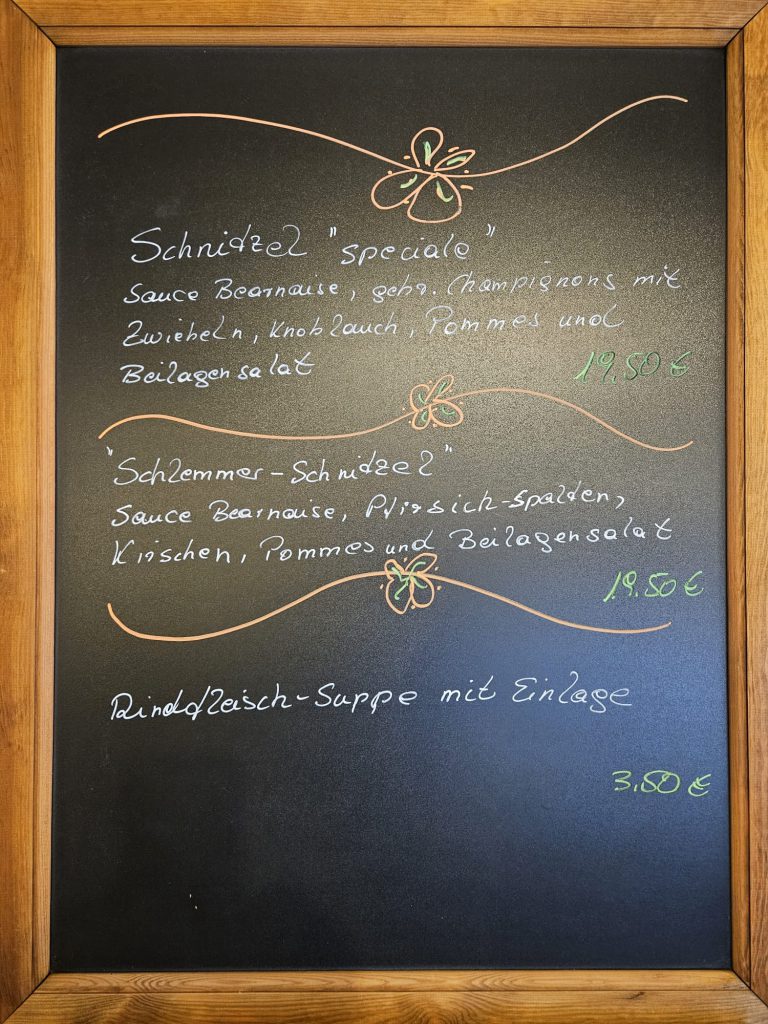 Schnitzel "speciale"
Sauce Bearnaise, gebr. Champignons mit
Zwiebeln, Knoblauch, Pommes und
Beilagensalat 19.50 €
"Schlemmer-Schnitzel"
Sauce Bearnaise, Pfirsich-spalten,
Kirschen, Pommes und Beilagensalat
19.50 €
Rindfleisch-Suppe mit Einlage
3.50 €